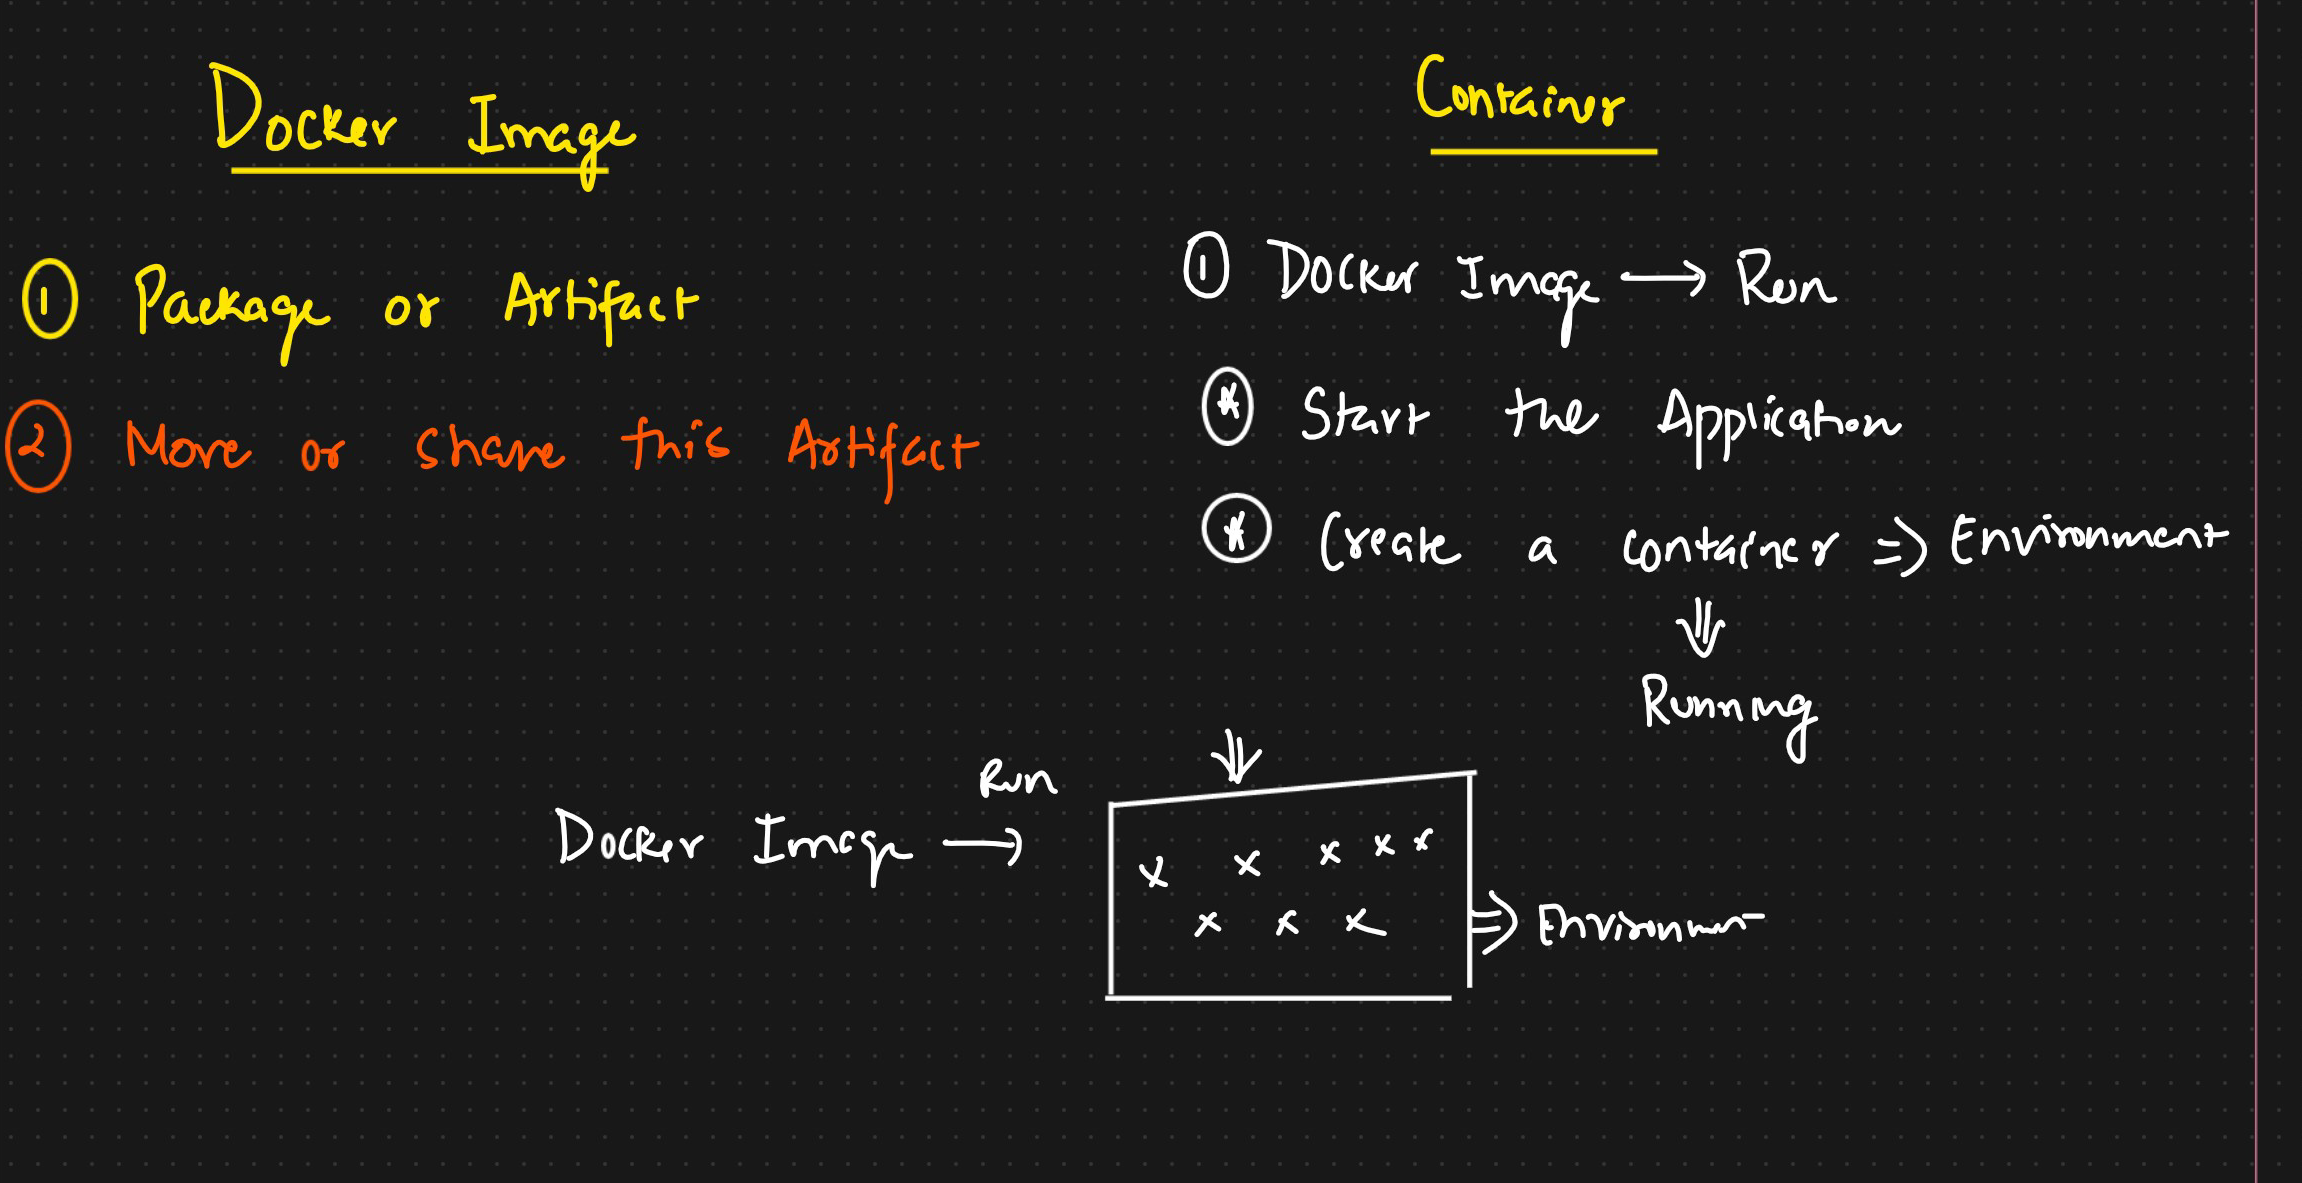 Docker Image
① Package or Artifact
② Move or share this Artifact
Container
① Docker Image → Run
* Start the Application
* Create a container ⇒ Environment
⇓
Running
Docker Image → Run
⇓
x x x x x
x x x
⇒ Environment